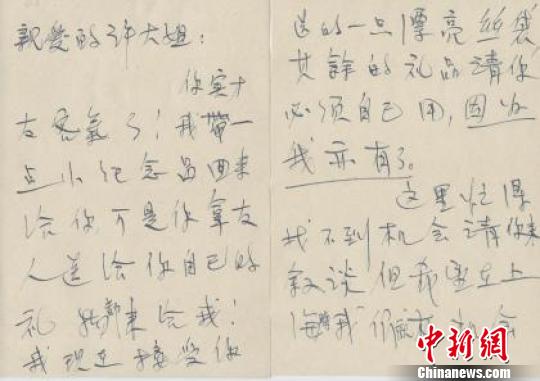 親愛的许大姐:
你实
客氣了!我帶一
点小纪念品回来
给你,可是你拿友
人送给你自己的
礼物都来给我!
我现在接受你
送的一点漂亮丝袋
其餘的礼品请你
必须自己用,因为
我亦有了。
这里忙得
找不到机会请你来
敘谈但我 在上
海 我们 机会
中新网